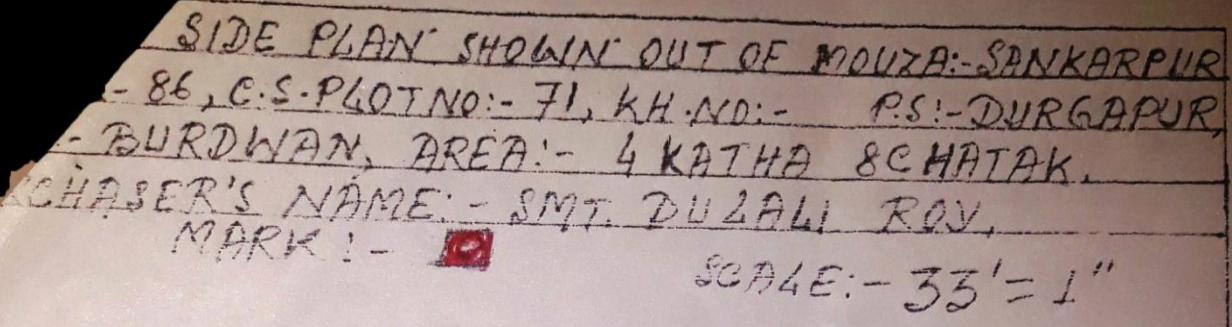 SIDE PLAN SHOWN OUT OF MOUZA:-SANKARPUR
- 86, C.S.PLOT NO:- 71, KH.NO:- P.S:-DURGAPUR,
:- BURDWAN, AREA:- 4 KATHA 8 CHATAK.
CHASER'S NAME:- SMT. DULALI ROY.
MARK:-
SCALE:- 33'=1"